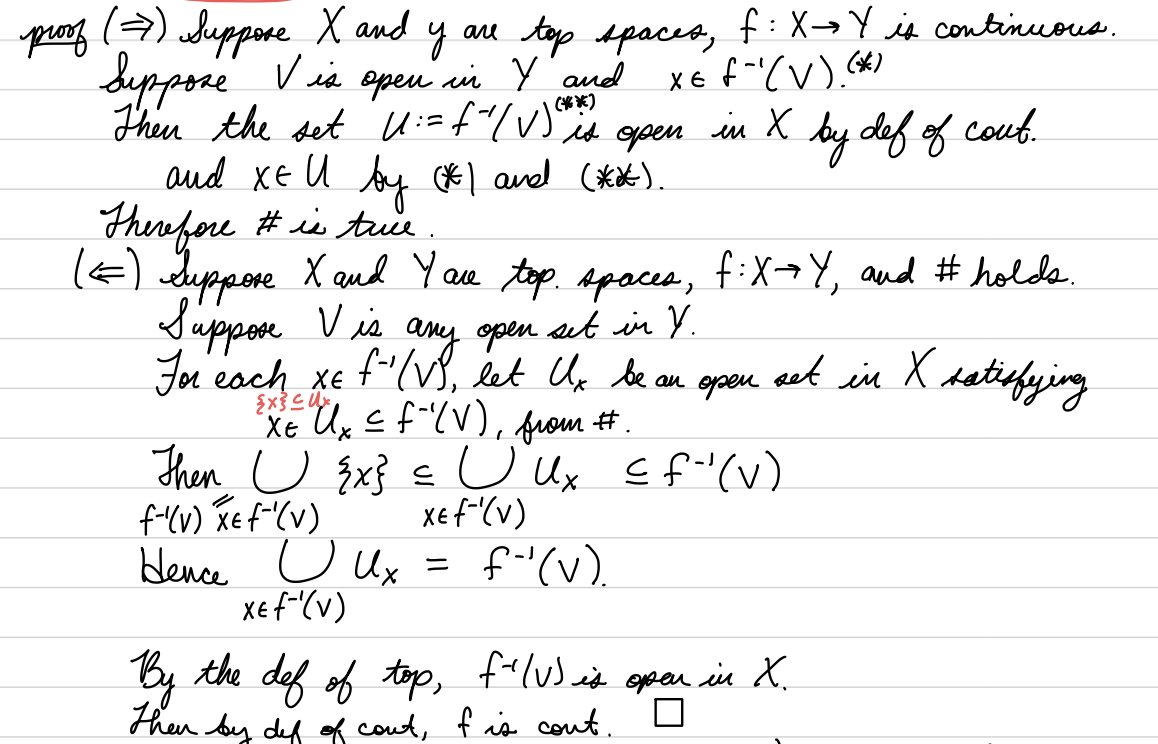 proof (⇒) Suppose X and y are top spaces, f : X → Y is continuous.
Suppose V is open in Y and x ∈ f⁻¹(V).(*)
Then the set U := f⁻¹(V)(**) is open in X by def of cont.
and x ∈ U by (*) and (**).
Therefore # is true.
(⇐) Suppose X and Y are top. spaces, f : X → Y, and # holds.
Suppose V is any open set in Y.
For each x ∈ f⁻¹(V), let Uₓ be an open set in X satisfying
{x} ⊆ Uₓ
x ∈ Uₓ ⊆ f⁻¹(V), from #.
Then ⋃ {x} ⊆ ⋃ Uₓ ⊆ f⁻¹(V)
f⁻¹(V) = x ∈ f⁻¹(V) x ∈ f⁻¹(V)
Hence ⋃ Uₓ = f⁻¹(V).
x ∈ f⁻¹(V)
By the def of top, f⁻¹(V) is open in X.
Then by def of cont, f is cont. □